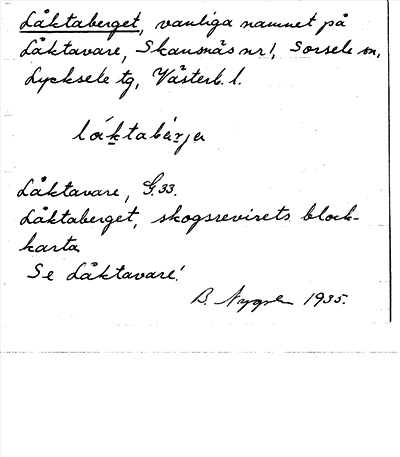 Låktaberget, vanliga namnet på
Låktavare, Skansnäs nr 1, Sorsele sn,
Lycksele tg, Västerb. l.
låktabärjə
Låktavare, G. 33.
Låktaberget, skogsrevirets block-
karta
Se Låktavare!
B. Nygren 1935.